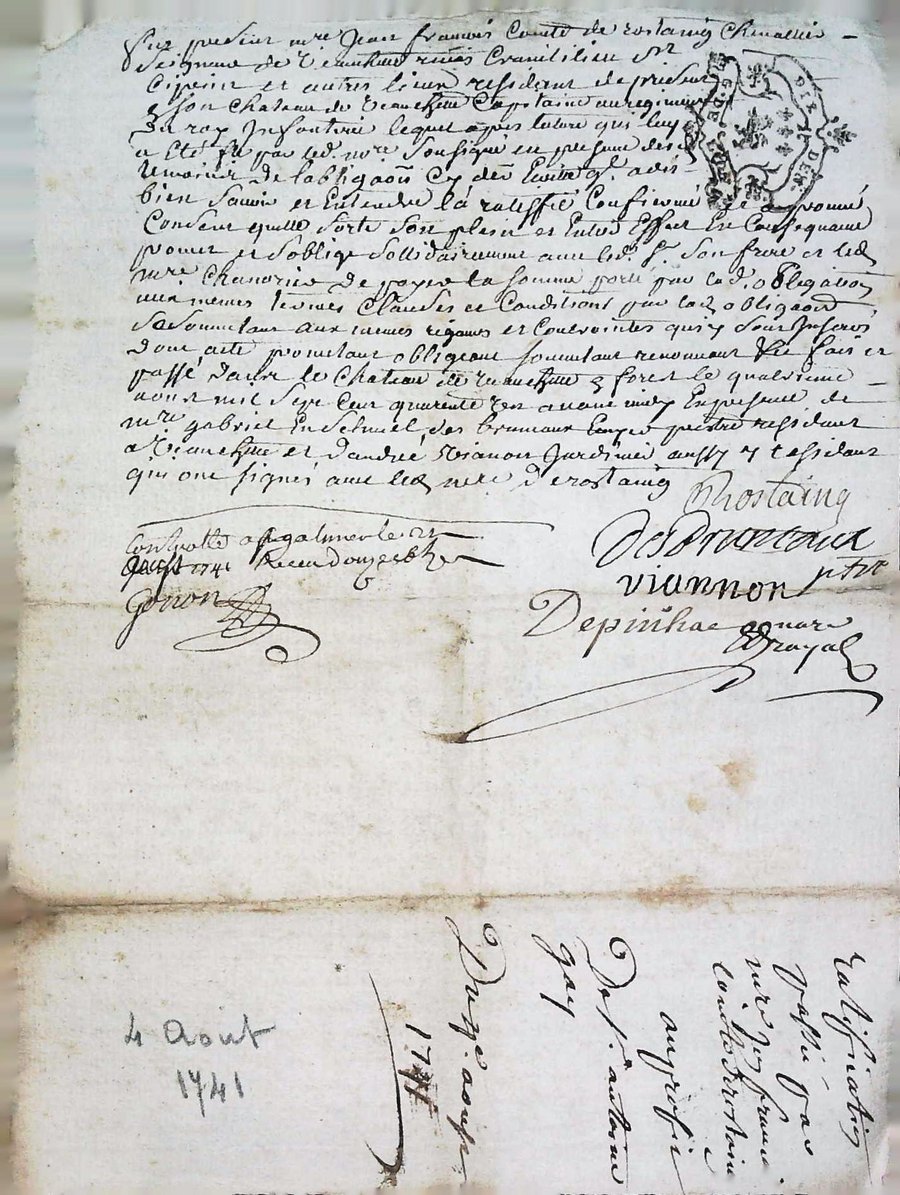 fut present mre Jean francois Comte de rostaing Chevallier
Seigneur de Veauchette rivas Craintilieu St
Ciprien et autres lieux residant de present
en son Chateau de Veauchette Capitaine au regiment
Du roy Infanterie lequel apres lecture qui luy
a été fe par led. nre Soussigné en presence des
temoins de l'obligaon cy der Ecritte
bien Scavoir et Entendre l'a ratiffié Confirmé et aprouvé
Consent quelle sorte Son plein et Entier Effect En Consequance
promet et Soblige Sollidairement avec led. Sr Son frere et led
mre de payer la somme porté par lad. obligation
aux memes termes Clauses et Conditions par lad obligaon
Se Soumettant aux memes rigueurs et Contraintes qui y Sont Inserés
Dont acte promettant obligeant Soumettant renonçant &c fait et
passé dans le Chateau de Veauchette en forest le quatorzieme
aoust mil Sept Cent quarante un avant midy En presence de
mre gabriel des bruneaux pretre residant
a Veauchette et d'andré Vianon Jardinier aussy y residant
qui ont signés avec led mre De rostaing
Rostaing
DesBruneaux
ptre
viannon
Depinhac
notaire
Royal
Controllé a St galmier le 21
aoust 1741 Receu douze
Gonon
ratification
passée par
mre Jean francois
comte de rostain
au profit
De Sr antoine
Du aoust
1741
4 Aout
1741